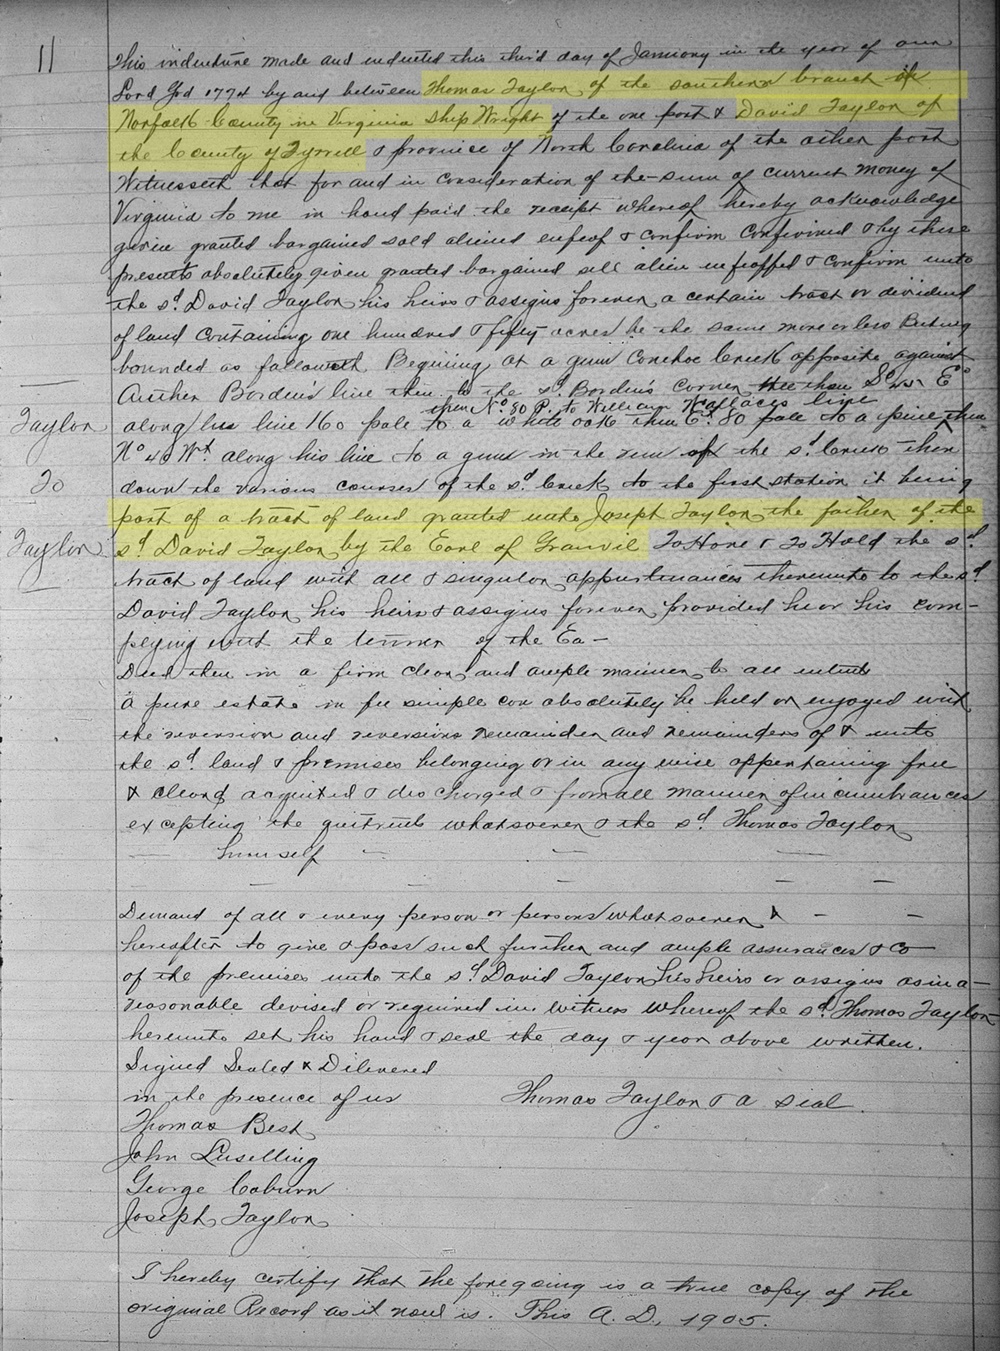 11
This indenture made and indented this third day of January in the year of our
Lord God 1774 by and between Thomas Taylor of the southern branch of
Norfolk County in Virginia Ship Wright of the one part & David Taylor of
the County of Tyrrell & province of North Carolina of the other part
Witnesseth that for and in consideration of the sum of current money of
Virginia to me in hand paid the receipt whereof hereby acknowledge
given granted bargained sold aliend enfeof & confirm confirmed & by these
presents absolutely given granted bargained sell alien infeoffed & confirm unto
the sd. David Taylor his heirs & assigns forever a certain tract or dividend
of land containing one hundred & fifty acres be the same more or less Butting
bounded as followeth Begining at a gum Conehoe Creek opposite against
Arther Borden's line then to the sd. Borden's corner then So. E°
then N° 80 P. to William Wallaces line
along his line 160 pole to a white oak then E°. 80 pole to a pine then
N° 40 Wt. along his line to a gum in the run of the sd. Creek then
down the various courses of the sd. Creek to the first station it being
part of a tract of land granted unto Joseph Taylor the father of the
sd. David Taylor by the Earl of Granvil To Have & To Hold the sd.
Taylor
To
Taylor
tract of land with all & singular appurtenances thereunto to the sd.
David Taylor his heirs & assigns forever provided he or his com-
plying with the tenner of the Ea-
Deed then in a firm clear and ample manner to all intents
a pure estate in fee simple can absolutely be held or enjoyed with
the reversion and reversions remainder and remainders of & unto
the sd. land & premises belonging or in any wise appertaining free
& clearly acquited & discharged & from all manner of incumbrances
excepting the quitrents whatsoever & the sd. Thomas Taylor
himself
Demand of all & every person or persons whatsoever &
hereafter to give & pass such further and ample assurances & Co
of the premises unto the sd. David Taylor his heirs or assigns as in a
reasonable devised or required in witness whereof the sd. Thomas Taylor
hereunto set his hand & seal the day & year above written.
Signed Sealed & Dilivered
in the presence of us Thomas Taylor & a seal.
Thomas Best
John Luselling
George Coburn
Joseph Taylor
I hereby certify that the foregoing is a true copy of the
original Record as it now is. This A. D. 1905.